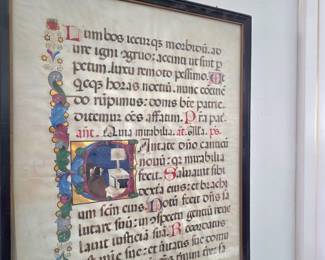 Lumbos iecurq; morbidū ad
ure igni ɔgruo: accincti ut sint p
petim. luxu remoto pessimo. Ut
qcq; horas noctiū. nunc ɔcinen
do rūpimus: donis btē patrie
ditemur oēs affatim. Pra pat
añt. Quia mirabilia. añ. ps.
Cantate dño canticū
nouū: qa mirabilia
fecit. Saluauit sibi
dextera eius: et brachi
um scm eius. Notū fecit dñs sa
lutare suū: in ɔspectu gentiū reue
lauit iusticiā suā. Recordatus
mie sue: et ueritatis sue domui